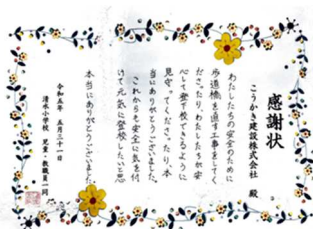 感謝状
こうかき建設株式会社 殿
わたしたちの安全のために
歩道橋を直す工事をしてく
ださったり、わたしたちが安
心して登下校できるように
見守ってくださったり、本
当にありがとうございました。
これからも安全に気を付
けて元気に登校したいと思
本当にありがとうございました。
令和五年 五月三十一日
清水小学校 児童・教職員一同